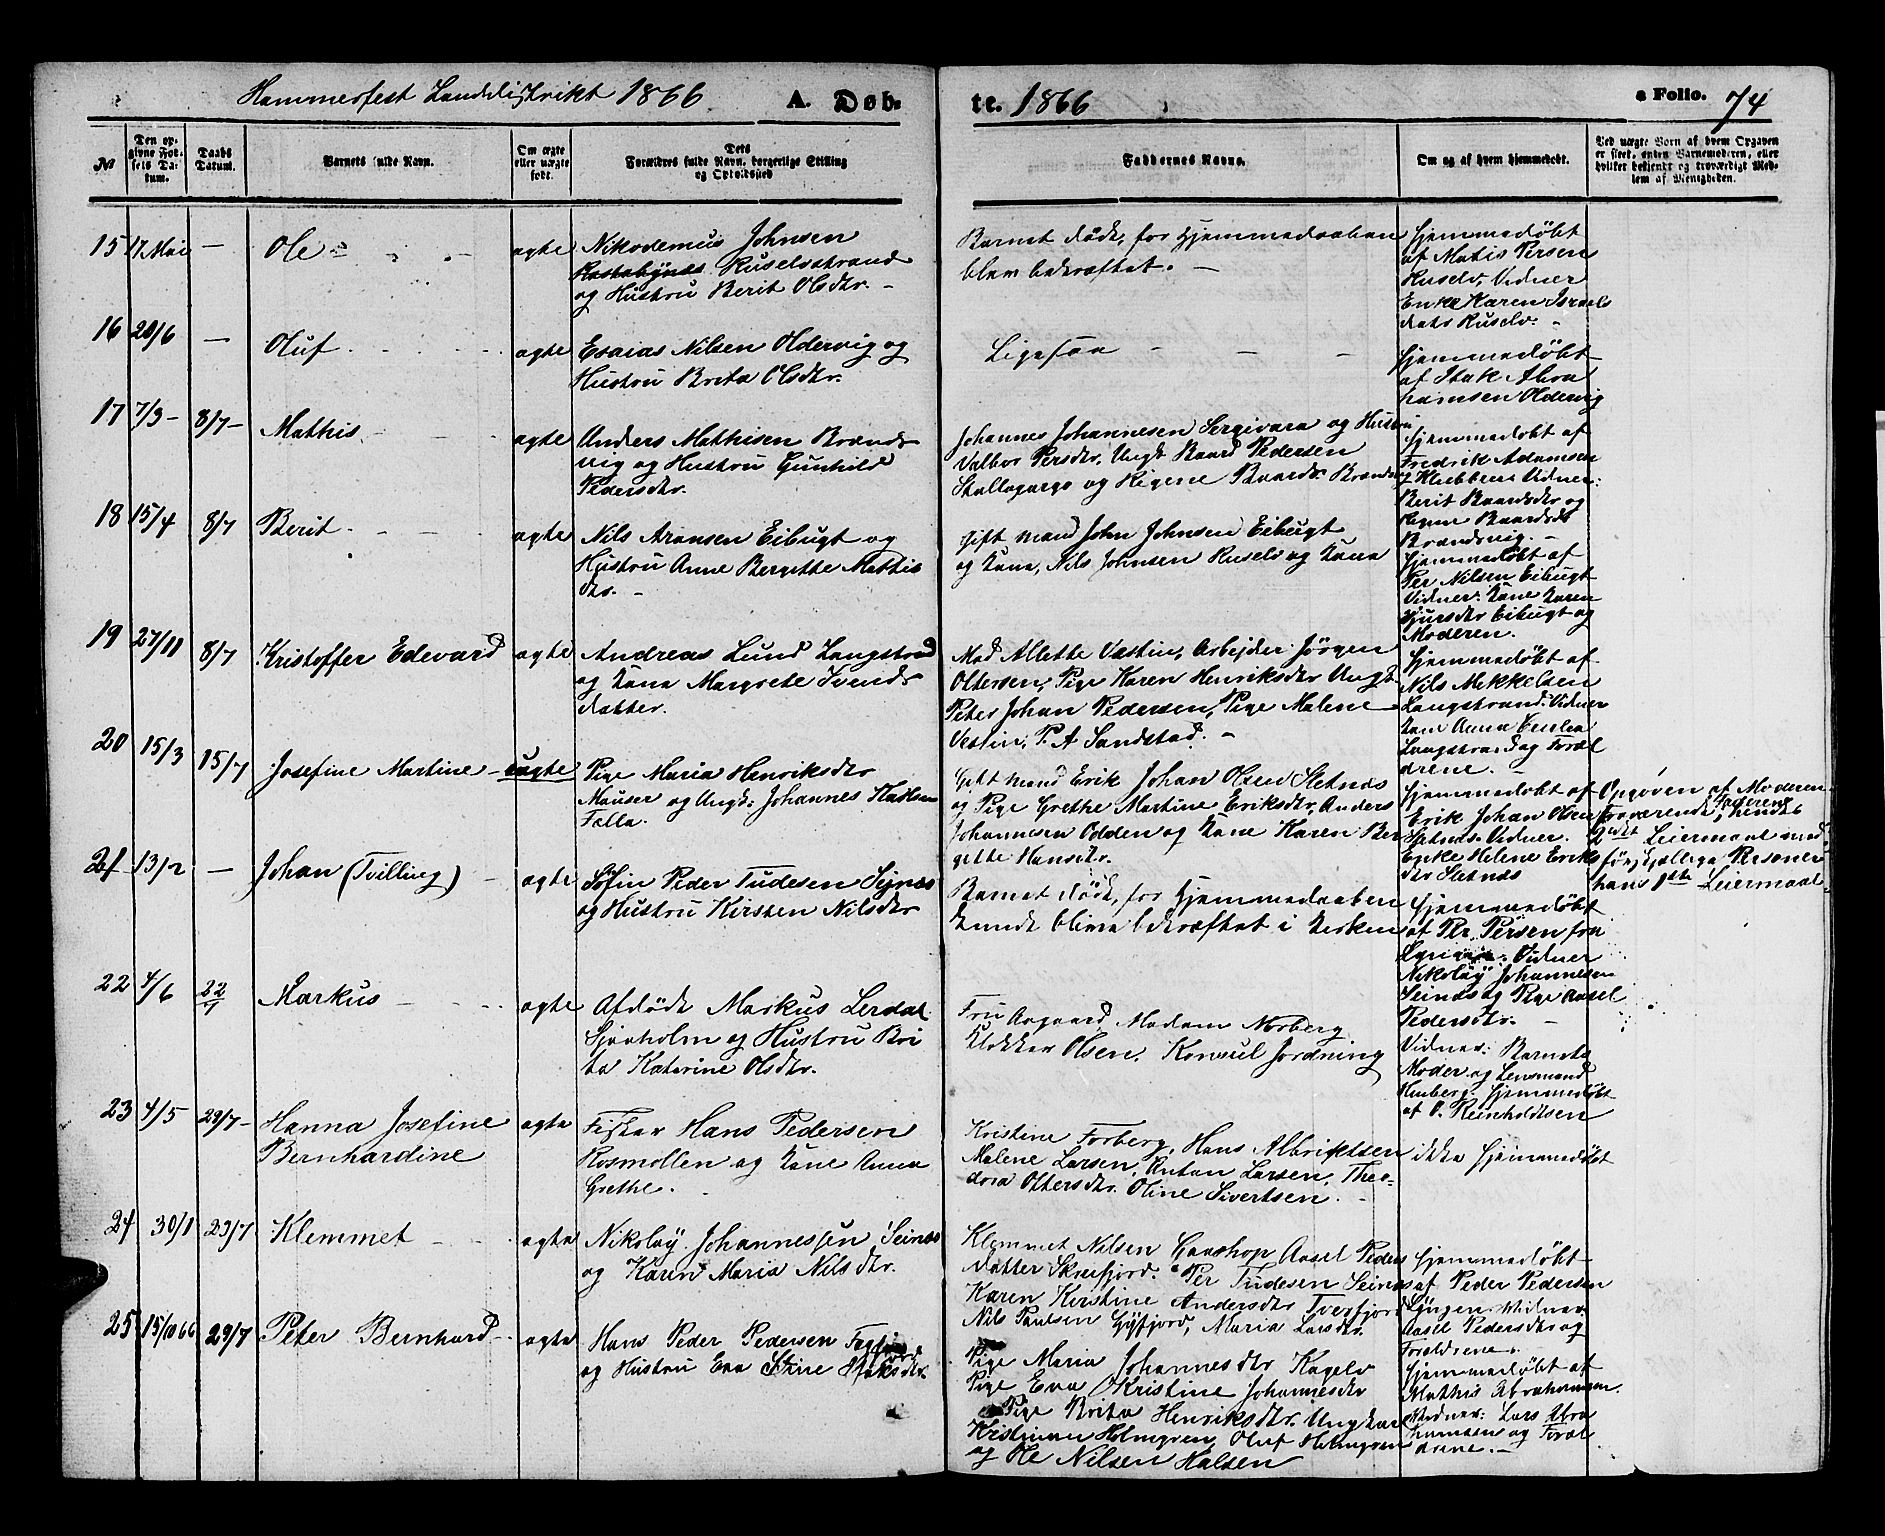 Hammerfest Landdistrikt 1866. A. Døb-
te. 1866 a Folio. 74
№
Den opgivne Fødsels Datum.
Daabs Datum.
Barnets fulde Navn.
Om ægte eller uægte født.
Dets Forældres fulde Navn, borgerlige Stilling og Opholdssted
Faddernes Navne.
Om og af hvem hjemmedøbt.
Ved uægte Børn af hvem Opgaven er skeet, enten Barnemoderen, eller hvilket bekjendt og troværdigt Medlem af Menigheden.
15 17. Mai — Ole
ægte
Nikodemus Johnsen
Ruselvstrand
og Hustru Berit Olsdtr. -
Barnet døde, før Hjemmedaaben
blev bekræftet. -
Hjemmedøbt
af Matis Persen
Ruselv, Vidner
Enke Karen Israels
datr Ruselv. -
16 20/6 — Oluf
ægte
Esaias Nilsen Oldervig og
Hustru Brita Olsdtr.
Ligesaa - - -
Hjemmedøbt
af Isak Abra
hamsen Oldervig
17 7/3 - 8/7 - Mathis
ægte
Anders Mathisen Brands
vig og Hustru Gunhild
Pedersdtr.
Johannes Johannesen Sergivara og Hustru
Valbor Persdtr, Ungk Baard Pedersen
Stallogargo og Pigene Baards. Brandsvig
Hjemmedøbt af
Fredrik Adamsen
Klubben Vidner:
Berit Baardsdtr og
Baardsdt
Brandsvig. -
18 15/4 8/7 Berit
ægte
Nils Aronsen Eibugt og
Hustru Anne Bergitte Mattis
dtr. -
Gift Mand John Johnsen Eibugt
og Kone, Nils Johnsen Ruselv og Kone
Hjemmedøbt af
Per Nilsen Eibugt
Vidner: Kone Karen
Sjursdtr Eibugt og
Moderen.
19 27/11 8/7 Kristoffer Edevard
ægte
Andreas Lund Langstrand
og Kone Margrete Svends
datter.
Mad Allette Vestin, Arbejder Jörgen
Ottersen, Pige Karen Henriksdtr Ungk.
Peter Johan Pedersen, Pige Malene
Vestin, P. A Sandstad. -
Hjemmedøbt af
Nils Mikkelsen
Langstrand. Vidner
Kone Anna
Langstrand og Foræl
drene. -
20 15/3 15/7 Josefine Martine
uægte
Pige Maria Henriksdtr
Mauser og Ungk: Johannes
Falla.
Gift Mand Erik Johan Olsen Sletnæs
og Pige Grethe Martine Eriksdtr, Anders
Johannesen Odden og Kone Karen Ber
gitte Hansdtr.
Hjemmedøbt af
Erik Johan Olsen
Sletnæs. Vidner.
Enke Helene Eriks
dtr Sletnæs
Opgaven af Moderen
Faderen
Fraværende, hendes
2det Leiermaal med
forskjellige Personer
hans 1ste Leiermaal.
21 13/2 — Johan (Tvilling) -
ægte
Søfin Peder Tudesen Sejnæs
og Hustru Kirsten Nilsdtr
Barnet døde, før Hjemmedaaben
kunde blive bekræftet i Kirken
Hjemmedøbt
af Per Persen fra
Vidner
Nikolaÿ Johannesen
Seinæs og Pige Aasel
Pedersdtr. -
22 4/6 22/7 Markus
ægte
Afdöde Markus Lerdal
Sjøholm og Hustru Bri
ta Katerine Olsdtr.
Fru Aagaard, Madam Norberg
Klokker Olsen, Konsul Jordning
Vidner: Barnets
Moder og Lensmand
Hjemmedøbt
af O. Reinholdtsen
23 4/5 29/7 - Hanna Josefine
Bernhardine
ægte
Fisker Hans Pedersen
Rosmollen og Kone Anna
Grethe.
Kristine Forberg, Hans Albriktsen
Malene Larsen, Anton Larsen, Theo-
dora Ottersdtr. Oline Sivertsen.
ikke Hjemmedøbt
24 30/1 23/7 Klemmet
ægte
Nikolaÿ Johannessen Seinæs
og Karen Maria Nilsdtr.
Klemmet Nilsen Gaashop Aasel Peders
datter Skreifjord. Per Tudesen Seinæs
Karen Kirstine Andersdtr Tverfjord
Nils Paulsen Gÿfjord, Maria Larsdtr.
Hjemmedøbt
af Peder Pedersen
Lyngen. Vidner
Aasel Pedersdtr og
Forældrene.
25 15/10 66 29/7 Peter Bernhard
ægte
Hans Peder Pedersen
og Hustru Eva Stine Isaksdtr.
Pige Maria Johannesdtr Kagelv
Pige Eva Kristine Johannesdtr
Pige Brita Henriksdtr, Ungkarl
Kristian Holmgren, Oluf Holmgren
og Ole Nilsen Halsen
Hjemmedøbt af
Mathis Abrahamsen.
Vidner: Lars Abra
hamsen og Foræl
drene. -